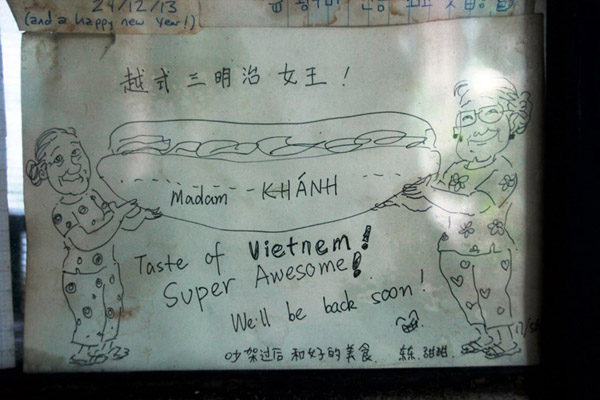 24/12/13
(and a happy new year!)
越式三明治女王！
Madam KHÁNH
Taste of Vietnem!
Super Awesome!
We'll be back soon!
吵架过后和好的美食
甜甜